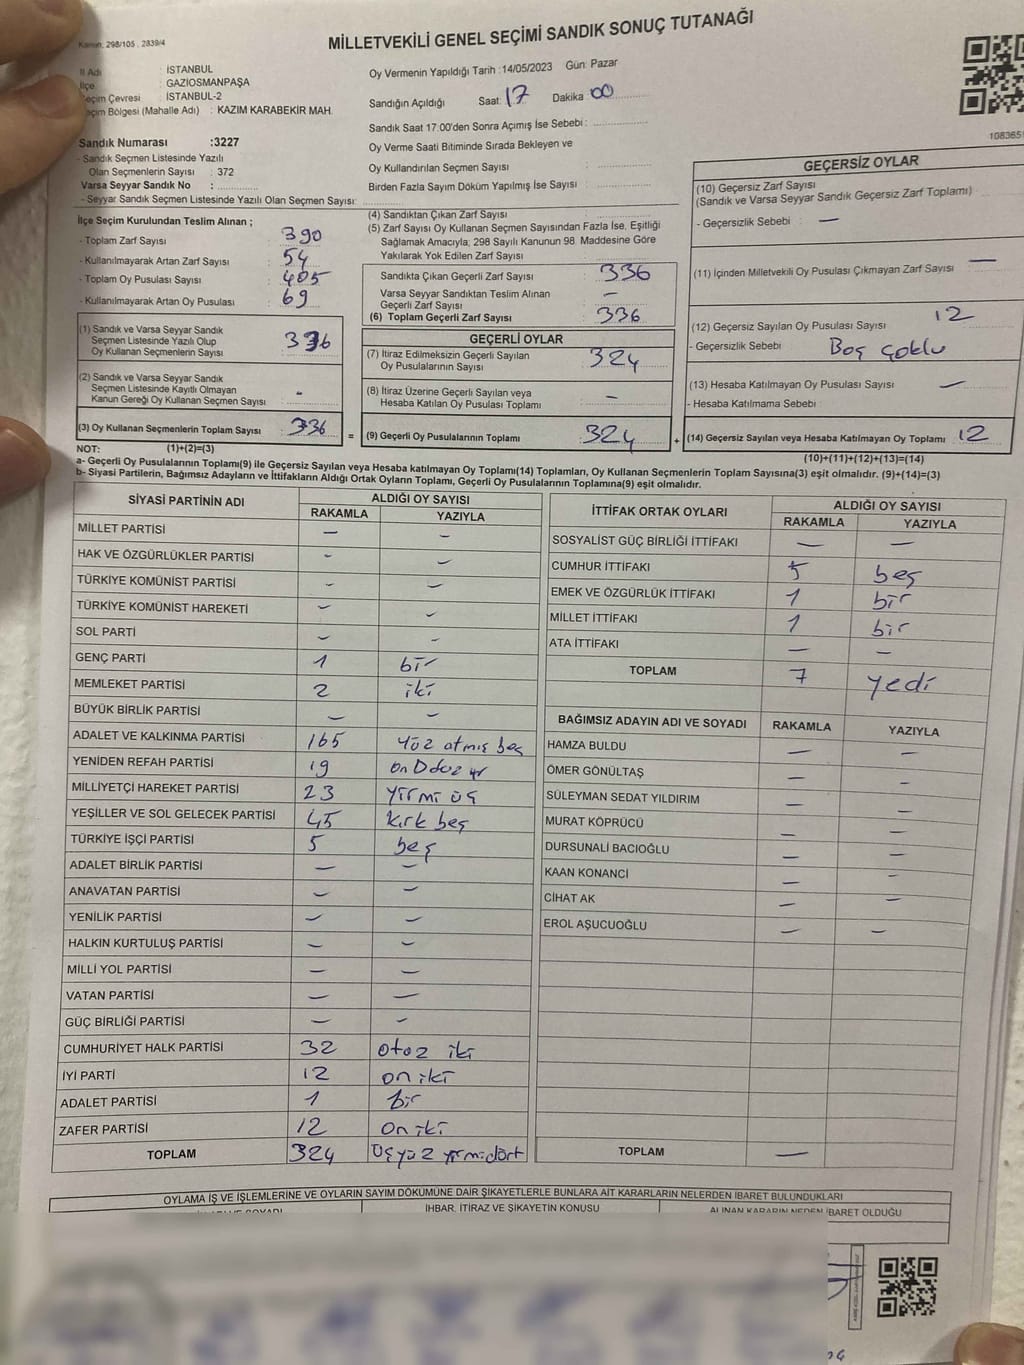 Kanun: 298/105 , 2839/4
MİLLETVEKİLİ GENEL SEÇİMİ SANDIK SONUÇ TUTANAĞI
İl Adı : İSTANBUL
İlçe : GAZİOSMANPAŞA
Seçim Çevresi : İSTANBUL-2
Seçim Bölgesi (Mahalle Adı) : KAZIM KARABEKİR MAH.
Sandık Numarası :3227
- Sandık Seçmen Listesinde Yazılı
Olan Seçmenlerin Sayısı : 372
Varsa Seyyar Sandık No :
- Seyyar Sandık Seçmen Listesinde Yazılı Olan Seçmen Sayısı:
Oy Vermenin Yapıldığı Tarih :14/05/2023 Gün: Pazar
Sandığın Açıldığı Saat: 17 Dakika 00
Sandık Saat 17:00'den Sonra Açımış İse Sebebi :
Oy Verme Saati Bitiminde Sırada Bekleyen ve
Oy Kullandırılan Seçmen Sayısı :
Birden Fazla Sayım Döküm Yapılmış İse Sayısı :
1083651
İlçe Seçim Kurulundan Teslim Alınan ;
- Toplam Zarf Sayısı : 390
- Kullanılmayarak Artan Zarf Sayısı : 54
- Toplam Oy Pusulası Sayısı : 405
- Kullanılmayarak Artan Oy Pusulası : 69
(1) Sandık ve Varsa Seyyar Sandık
Seçmen Listesinde Yazılı Olup
Oy Kullanan Seçmenlerin Sayısı : 336
(2) Sandık ve Varsa Seyyar Sandık
Seçmen Listesinde Kayıtlı Olmayan
Kanun Gereği Oy Kullanan Seçmen Sayısı : -
(3) Oy Kullanan Seçmenlerin Toplam Sayısı : 336
(4) Sandıktan Çıkan Zarf Sayısı :
(5) Zarf Sayısı Oy Kullanan Seçmen Sayısından Fazla İse, Eşitliği
Sağlamak Amacıyla; 298 Sayılı Kanunun 98. Maddesine Göre
Yakılarak Yok Edilen Zarf Sayısı :
Sandıkta Çıkan Geçerli Zarf Sayısı : 336
Varsa Seyyar Sandıktan Teslim Alınan
Geçerli Zarf Sayısı : -
(6) Toplam Geçerli Zarf Sayısı : 336
GEÇERLİ OYLAR
(7) İtiraz Edilmeksizin Geçerli Sayılan
Oy Pusulalarının Sayısı : 324
(8) İtiraz Üzerine Geçerli Sayılan veya
Hesaba Katılan Oy Pusulası Toplamı : -
= (9) Geçerli Oy Pusulalarının Toplamı : 324
GEÇERSİZ OYLAR
(10) Geçersiz Zarf Sayısı
(Sandık ve Varsa Seyyar Sandık Geçersiz Zarf Toplamı) :
- Geçersizlik Sebebi : -
(11) İçinden Milletvekili Oy Pusulası Çıkmayan Zarf Sayısı : -
(12) Geçersiz Sayılan Oy Pusulası Sayısı : 12
- Geçersizlik Sebebi : Boş çoklu
(13) Hesaba Katılmayan Oy Pusulası Sayısı : -
- Hesaba Katılmama Sebebi :
+ (14) Geçersiz Sayılan veya Hesaba Katılmayan Oy Toplamı : 12
NOT: (1)+(2)=(3)
(10)+(11)+(12)+(13)=(14)
a- Geçerli Oy Pusulalarının Toplamı(9) ile Geçersiz Sayılan veya Hesaba katılmayan Oy Toplamı(14) Toplamları, Oy Kullanan Seçmenlerin Toplam Sayısına(3) eşit olmalıdır. (9)+(14)=(3)
b- Siyasi Partilerin, Bağımsız Adayların ve İttifakların Aldığı Ortak Oyların Toplamı, Geçerli Oy Pusulalarının Toplamına(9) eşit olmalıdır.
SİYASİ PARTİNİN ADI ALDIĞI OY SAYISI
RAKAMLA YAZIYLA
MİLLET PARTİSİ - -
HAK VE ÖZGÜRLÜKLER PARTİSİ - -
TÜRKİYE KOMÜNİST PARTİSİ - -
TÜRKİYE KOMÜNİST HAREKETİ - -
SOL PARTİ - -
GENÇ PARTİ 1 bir
MEMLEKET PARTİSİ 2 iki
BÜYÜK BİRLİK PARTİSİ - -
ADALET VE KALKINMA PARTİSİ 165 yüz atmış beş
YENİDEN REFAH PARTİSİ 19
MİLLİYETÇİ HAREKET PARTİSİ 23 yirmi üç
YEŞİLLER VE SOL GELECEK PARTİSİ 45 kırk beş
TÜRKİYE İŞÇİ PARTİSİ 5 beş
ADALET BİRLİK PARTİSİ - -
ANAVATAN PARTİSİ - -
YENİLİK PARTİSİ - -
HALKIN KURTULUŞ PARTİSİ - -
MİLLİ YOL PARTİSİ - -
VATAN PARTİSİ - -
GÜÇ BİRLİĞİ PARTİSİ - -
CUMHURİYET HALK PARTİSİ 32 otuz iki
İYİ PARTİ 12 on iki
ADALET PARTİSİ 1 bir
ZAFER PARTİSİ 12 on iki
TOPLAM 324 üçyüz yirmidört
İTTİFAK ORTAK OYLARI ALDIĞI OY SAYISI
RAKAMLA YAZIYLA
SOSYALİST GÜÇ BİRLİĞİ İTTİFAKI - -
CUMHUR İTTİFAKI 5 beş
EMEK VE ÖZGÜRLÜK İTTİFAKI 1 bir
MİLLET İTTİFAKI 1 bir
ATA İTTİFAKI - -
TOPLAM 7 yedi
BAĞIMSIZ ADAYIN ADI VE SOYADI RAKAMLA YAZIYLA
HAMZA BULDU - -
ÖMER GÖNÜLTAŞ - -
SÜLEYMAN SEDAT YILDIRIM - -
MURAT KÖPRÜCÜ - -
DURSUNALİ BACIOĞLU - -
KAAN KONANCİ - -
CİHAT AK - -
EROL AŞUCUOĞLU - -
TOPLAM -
OYLAMA İŞ VE İŞLEMLERİNE VE OYLARIN SAYIM DÖKÜMÜNE DAİR ŞİKAYETLERLE BUNLARA AİT KARARLARIN NELERDEN İBARET BULUNDUKLARI
İHBAR, İTİRAZ VE ŞİKAYETİN KONUSU
ALINAN KARARIN NEDEN İBARET OLDUĞU